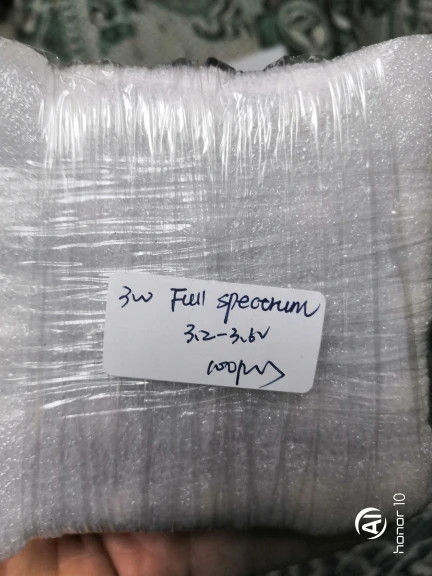 3w Full spectrum
3.2-3.6V
100pcs
AI
honor 10